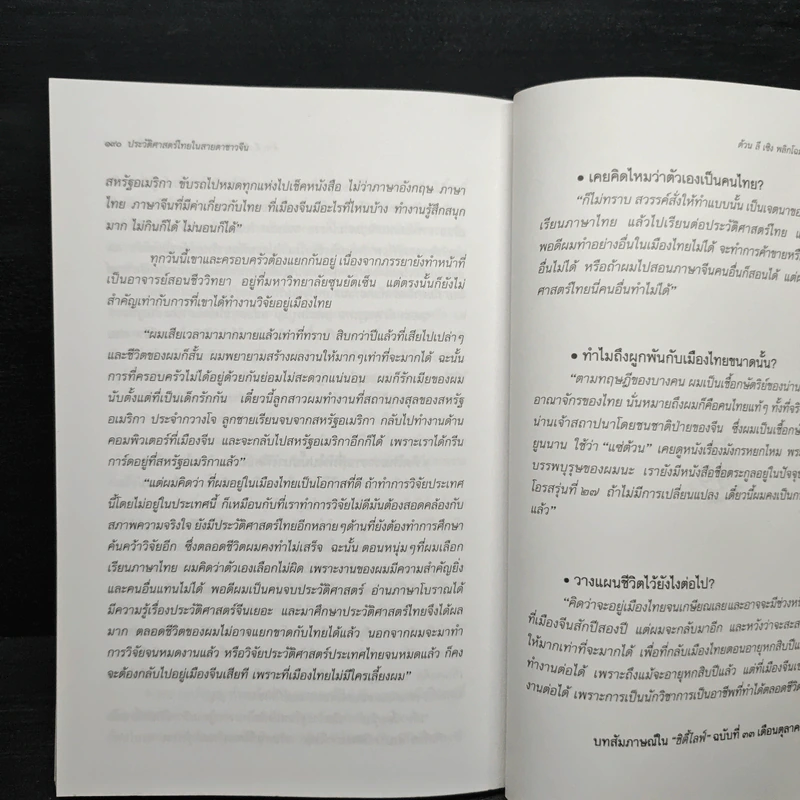 ๑๙๐ ประวัติศาสตร์ไทยในสายตาชาวจีน
สหรัฐอเมริกา ขับรถไปหมดทุกแห่งไปเช็คหนังสือ ไม่ว่าภาษาอังกฤษ ภาษา
ไทย ภาษาจีนที่มีค่าเกี่ยวกับไทย ที่เมืองจีนมีอะไรที่ไหนบ้าง ทำงานรู้สึกสนุก
มาก ไม่กินก็ได้ ไม่นอนก็ได้”
ทุกวันนี้เขาและครอบครัวต้องแยกกันอยู่ เนื่องจากภรรยายังทำหน้าที่
เป็นอาจารย์สอนชีววิทยา อยู่ที่มหาวิทยาลัยซุนยัตเซ็น แต่ตรงนั้นก็ยังไม่
สำคัญเท่ากับการที่เขาได้ทำงานวิจัยอยู่เมืองไทย
“ผมเสียเวลามามากมายแล้วเท่าที่ทราบ สิบกว่าปีแล้วที่เสียไปเปล่าๆ
และชีวิตของผมก็สั้น ผมพยายามสร้างผลงานให้มากๆเท่าที่จะมากได้ ฉะนั้น
การที่ครอบครัวไม่ได้อยู่ด้วยกันย่อมไม่สะดวกแน่นอน ผมก็รักเมียของผม
นับตั้งแต่ที่เป็นเด็กรักกัน เดี๋ยวนี้ลูกสาวผมทำงานที่สถานกงสุลของสหรัฐ
อเมริกา ประจำกวางโจ ลูกชายเรียนจบจากสหรัฐอเมริกา กลับไปทำงานด้าน
คอมพิวเตอร์ที่เมืองจีน และจะกลับไปสหรัฐอเมริกาอีกก็ได้ เพราะเราได้กรีน
การ์ดอยู่ที่สหรัฐอเมริกาแล้ว”
“แต่ผมคิดว่า ที่ผมอยู่ในเมืองไทยเป็นโอกาสที่ดี ถ้าทำการวิจัยประเทศ
นี้โดยไม่อยู่ในประเทศนี้ ก็เหมือนกับที่เราทำการวิจัยไม่ดีมันต้องสอดคล้องกับ
สภาพความจริงใจ ยังมีประวัติศาสตร์ไทยอีกหลายๆด้านที่ยังต้องทำการศึกษา
ค้นคว้าวิจัยอีก ซึ่งตลอดชีวิตผมคงทำไม่เสร็จ ฉะนั้น ตอนหนุ่มๆที่ผมเลือก
เรียนภาษาไทย ผมคิดว่าตัวเองเลือกไม่ผิด เพราะงานของผมมีความสำคัญยิ่ง
และคนอื่นแทนไม่ได้ พอดีผมเป็นคนจบประวัติศาสตร์ อ่านภาษาโบราณได้
มีความรู้เรื่องประวัติศาสตร์จีนเยอะ และมาศึกษาประวัติศาสตร์ไทยจึงได้ผล
มาก ตลอดชีวิตของผมไม่อาจแยกขาดกับไทยได้แล้ว นอกจากผมจะมาทำ
การวิจัยจนหมดงานแล้ว หรือวิจัยประวัติศาสตร์ประเทศไทยจนหมดแล้ว ก็คง
จะต้องกลับไปอยู่เมืองจีนเสียที เพราะที่เมืองไทยไม่มีใครเลี้ยงผม”
ต้วน ลี เซิง พลิกโฉม
• เคยคิดไหมว่าตัวเองเป็นคนไทย?
“ก็ไม่ทราบ สวรรค์สั่งให้ทำแบบนั้น เป็นเจตนาขอ
เรียนภาษาไทย แล้วไปเรียนต่อประวัติศาสตร์ไทย แ
พอดีผมทำอย่างอื่นในเมืองไทยไม่ได้ จะทำการค้าขายหรื
อื่นไม่ได้ หรือถ้าผมไปสอนภาษาจีนคนอื่นก็สอนได้ แต่ผ
ศาสตร์ไทยนี่คนอื่นทำไม่ได้”
• ทำไมถึงผูกพันกับเมืองไทยขนาดนั้น?
“ตามทฤษฎีของบางคน ผมเป็นเชื้อกษัตริย์ของน่าน
อาณาจักรของไทย นั่นหมายถึงผมก็คือคนไทยแท้ๆ ทั้งที่จริ
น่านเจ้าสถาปนาโดยชนชาติป่ายของจีน ซึ่งผมเป็นเชื้อกษั
ยูนนาน ใช้ว่า “แซ่ต้วน” เคยดูหนังเรื่องมังกรหยกไหม พระ
บรรพบุรุษของผมนะ เรายังมีหนังสือชื่อตระกูลอยู่ในปัจจุบ
โอรสรุ่นที่ ๒๗ ถ้าไม่มีการเปลี่ยนแปลง เดี๋ยวนี้ผมคงเป็นก
แล้ว”
• วางแผนชีวิตไว้ยังไงต่อไป?
“คิดว่าจะอยู่เมืองไทยจนเกษียณเลยและอาจจะมีช่วงหน
ที่เมืองจีนสักปีสองปี แต่ผมจะกลับมาอีก และหวังว่าจะสะส
ให้มากเท่าที่จะมากได้ เพื่อที่กลับเมืองไทยตอนอายุหกสิบปีแ
ทำงานต่อได้ เพราะถึงแม้จะอายุหกสิบปีแล้ว แต่ที่เมืองจีนเข
งานต่อได้ เพราะการเป็นนักวิชาการเป็นอาชีพที่ทำได้ตลอดชีวิต
บทสัมภาษณ์ใน “ฮิตี้ไลฟ์” ฉบับที่ ๓๓ เดือนตุลาค